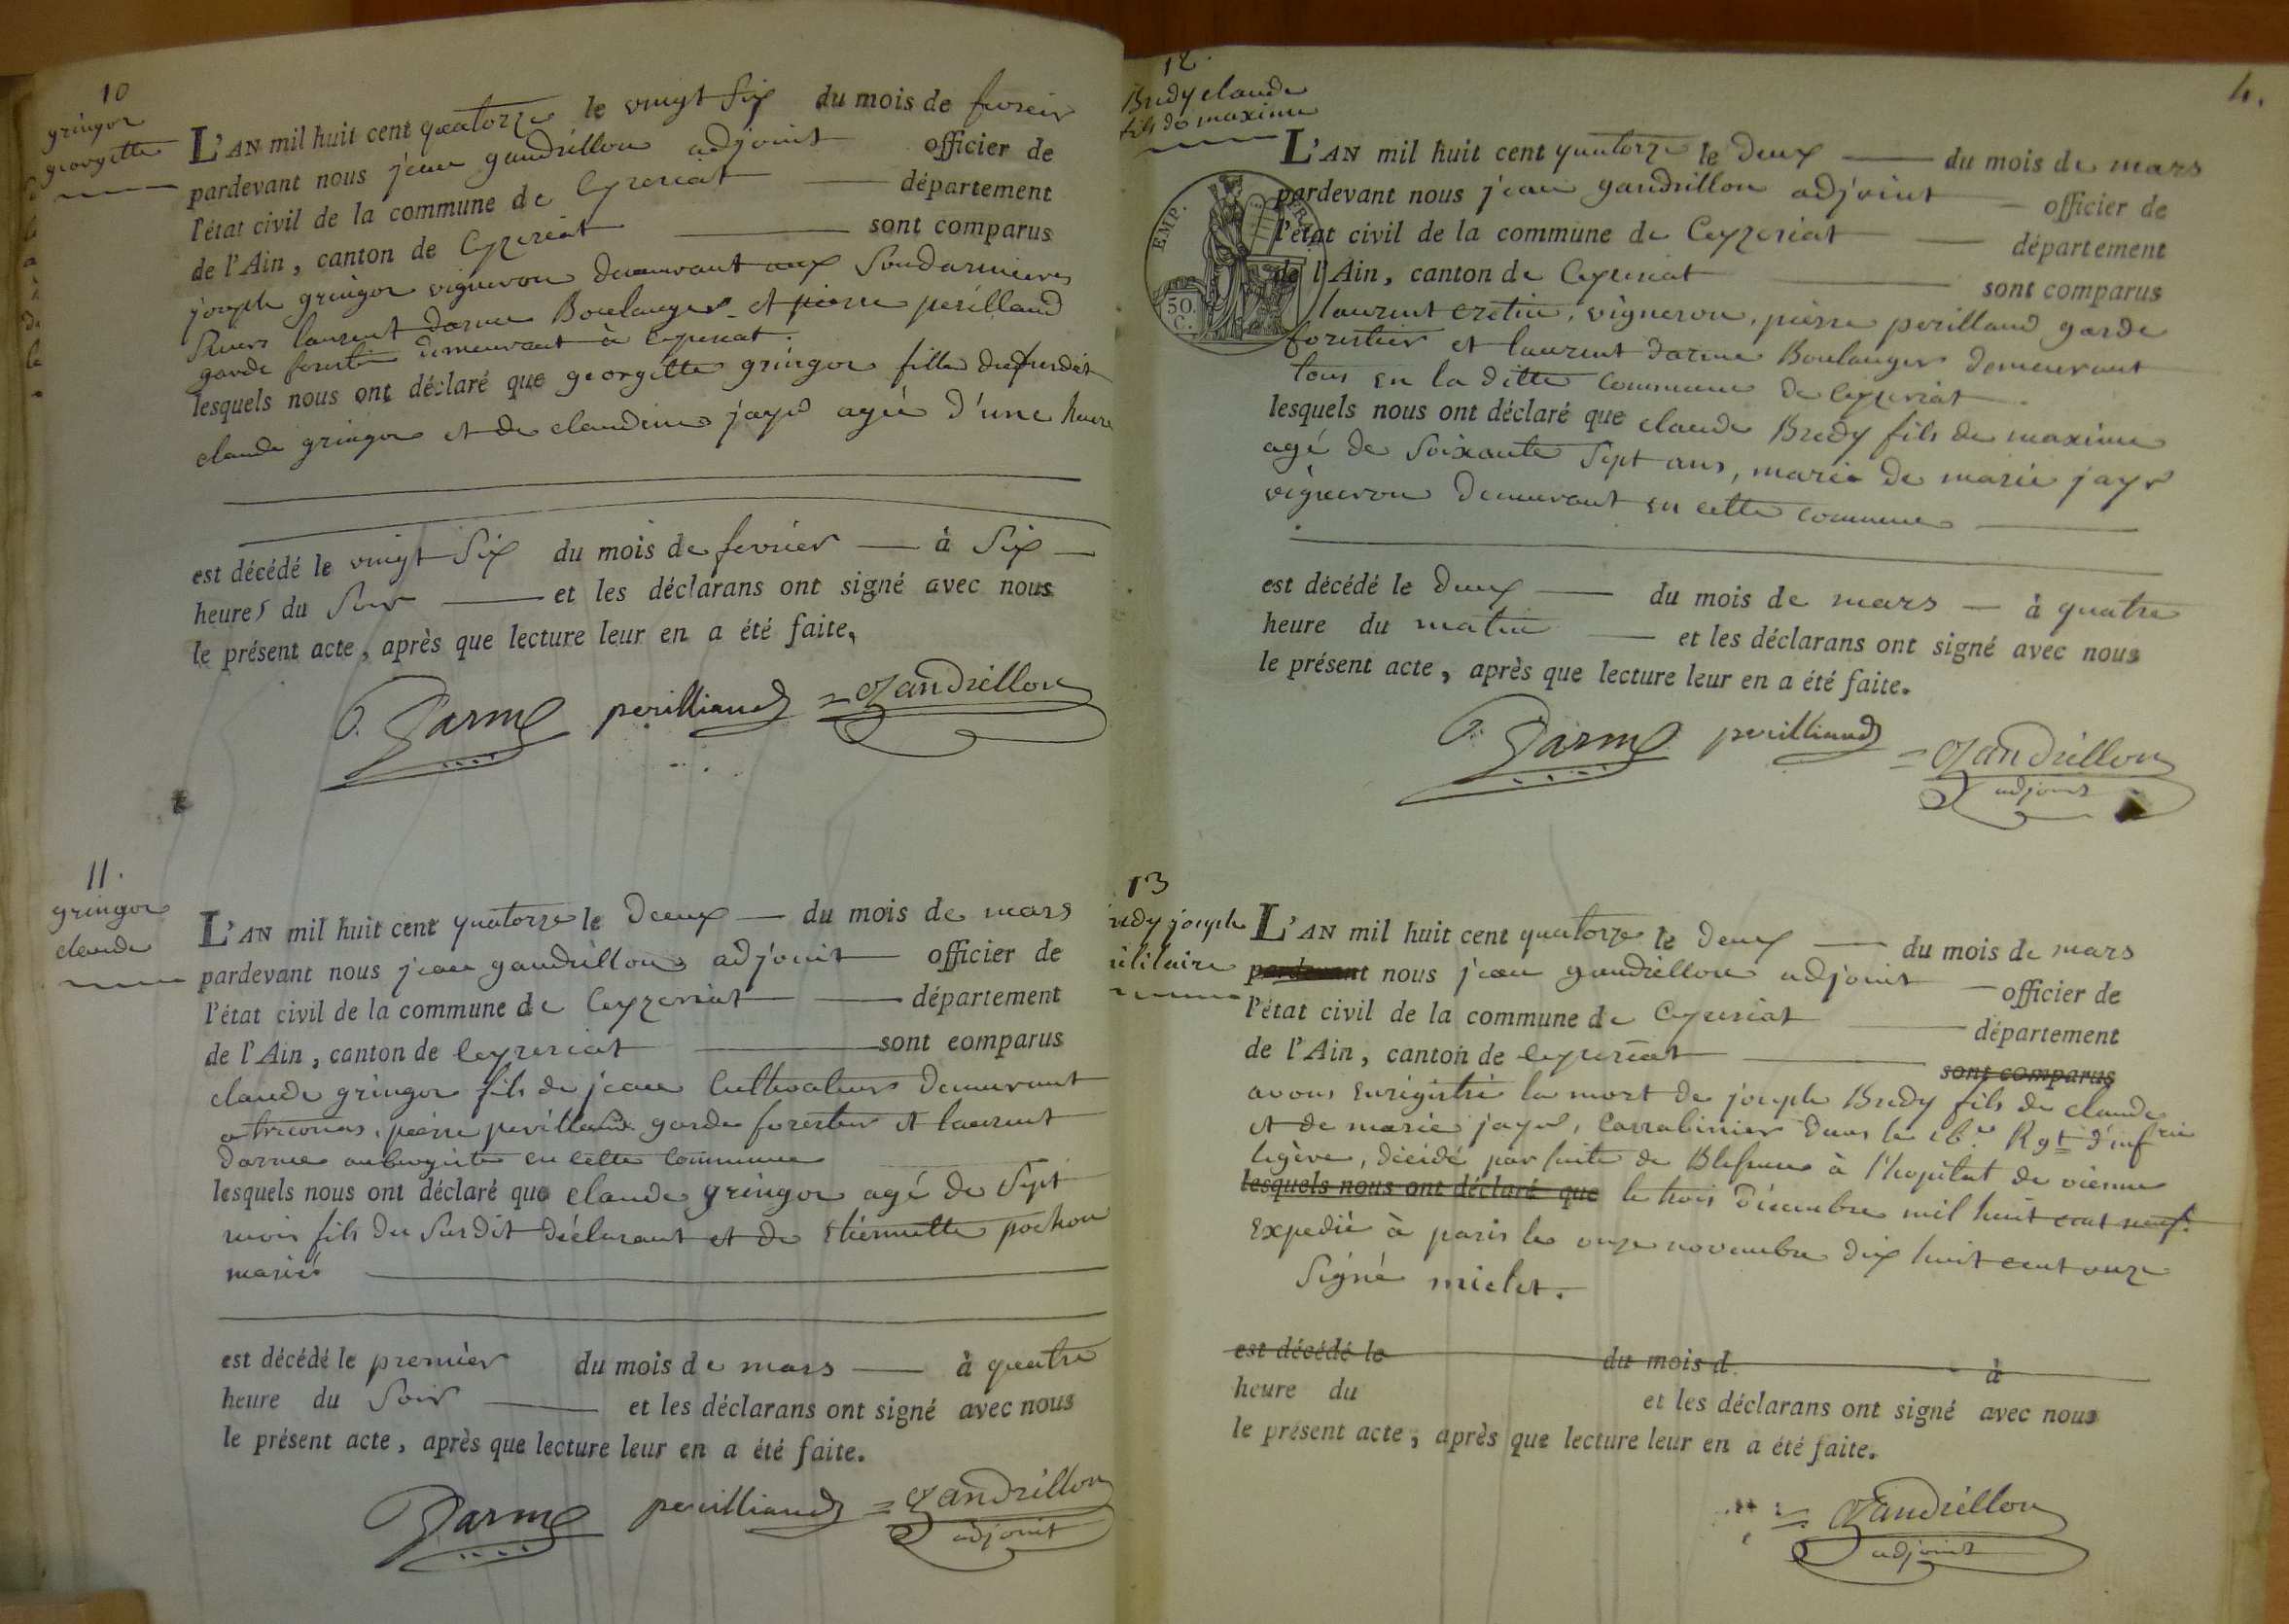 10
gringoz
georgette
L'AN mil huit cent quatorze le vingt six du mois de fevrier
pardevant nous jean gaudrillon adjoint officier de
l'état civil de la commune de Ceyzeriat département
de l'Ain, canton de Ceyzeriat sont comparus
joseph gringoz vigneron demeurant aux Soudarnieres
laurent darme Boulanger et pierre perilland
garde forestier demeurant à Ceyzeriat.
lesquels nous ont déclaré que georgette gringoz fille
claude gringoz et de claudine jayr agée d'une heure
est décédé le vingt six du mois de fevrier à six
heures du soir et les déclarans ont signé avec nous
le présent acte, après que lecture leur en a été faite,
Darme perilliand Gandrillon
11.
gringoz
claude
L'AN mil huit cent quatorze le deux du mois de mars
pardevant nous jean gaudrillon adjoint officier de
l'état civil de la commune de Ceyzeriat département
de l'Ain, canton de Ceyzeriat sont comparus
claude gringoz fils de jean Cultivateur demeurant
a treconas, pierre perilland garde forestier et laurent
darme aubergiste en cette commune
lesquels nous ont déclaré que claude gringoz agé de sept
mois fils du susdit déclarant et de Etiennette pochon
mariés
est décédé le premier du mois de mars à quatre
heure du soir et les déclarans ont signé avec nous
le présent acte, après que lecture leur en a été faite.
Darme perilliand Gandrillon
adjoint
4.
12.
Bredy claude
fils de maxime
EMP. FR
50.
C.
L'AN mil huit cent quatorze le deux du mois de mars
pardevant nous jean gaudrillon adjoint officier de
l'état civil de la commune de Ceyzeriat département
de l'Ain, canton de Ceyzeriat sont comparus
laurent cretin, vigneron, pierre perilland garde
forestier et laurent darme Boulanger demeurant
tous en la ditte commune de Ceyzeriat
lesquels nous ont déclaré que claude Bredy fils de maxime
agé de soixante sept ans, marié de marie jayr
vigneron demeurant en cette commune
est décédé le deux du mois de mars à quatre
heure du matin et les déclarans ont signé avec nous
le présent acte, après que lecture leur en a été faite.
Darme perilliand Gandrillon
adjoint
13
redy joseph
militaire
L'AN mil huit cent quatorze le deux du mois de mars
pardevant nous jean gaudrillon adjoint officier de
l'état civil de la commune de Ceyzeriat département
de l'Ain, canton de Ceyzeriat sont comparus
avons enregistré la mort de joseph Bredy fils de claude
et de marie jayr, Carrabinier dans le 16.e Rgt d'infrie
legère, décédé par suite de Blessure à l'hopital de vienne
lesquels nous ont déclaré que le trois décembre mil huit cent neuf.
Expedié à paris le onze novembre dix huit cent onze
Signé miclet.
est décédé le du mois d à
heure du et les déclarans ont signé avec nous
le présent acte, après que lecture leur en a été faite.
Gandrillon
adjoint